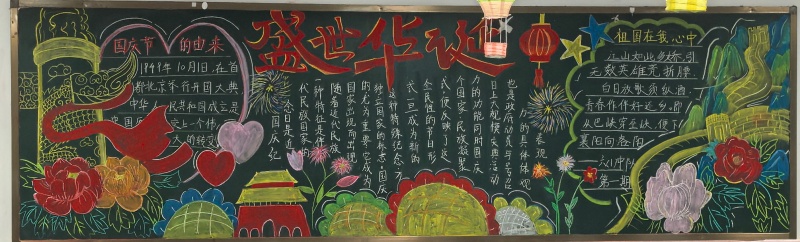 盛世华诞
国庆节的由来
1949年10月1日,在首
都北京举行开国大典
中华人民共和国成立
国庆纪
念日是近
代民族国家的
一种特征是伴
随着近代民族
国家出现而出现
的尤为重要它成为
独立国家的标志国庆
这种特殊纪念方
式一旦成为新的
全民性的节日形
式,便反映了这
个国家民族凝聚
力的功能同时国庆
日上大规模庆典活动
也是政府动员与号召
力的具体体现
表现
祖国在我心中
江山如此多娇,引
无数英雄竞折腰
白日放歌须纵酒
青春作伴好还乡,即
从巴峡穿巫峡,便下
襄阳向洛阳
第一期